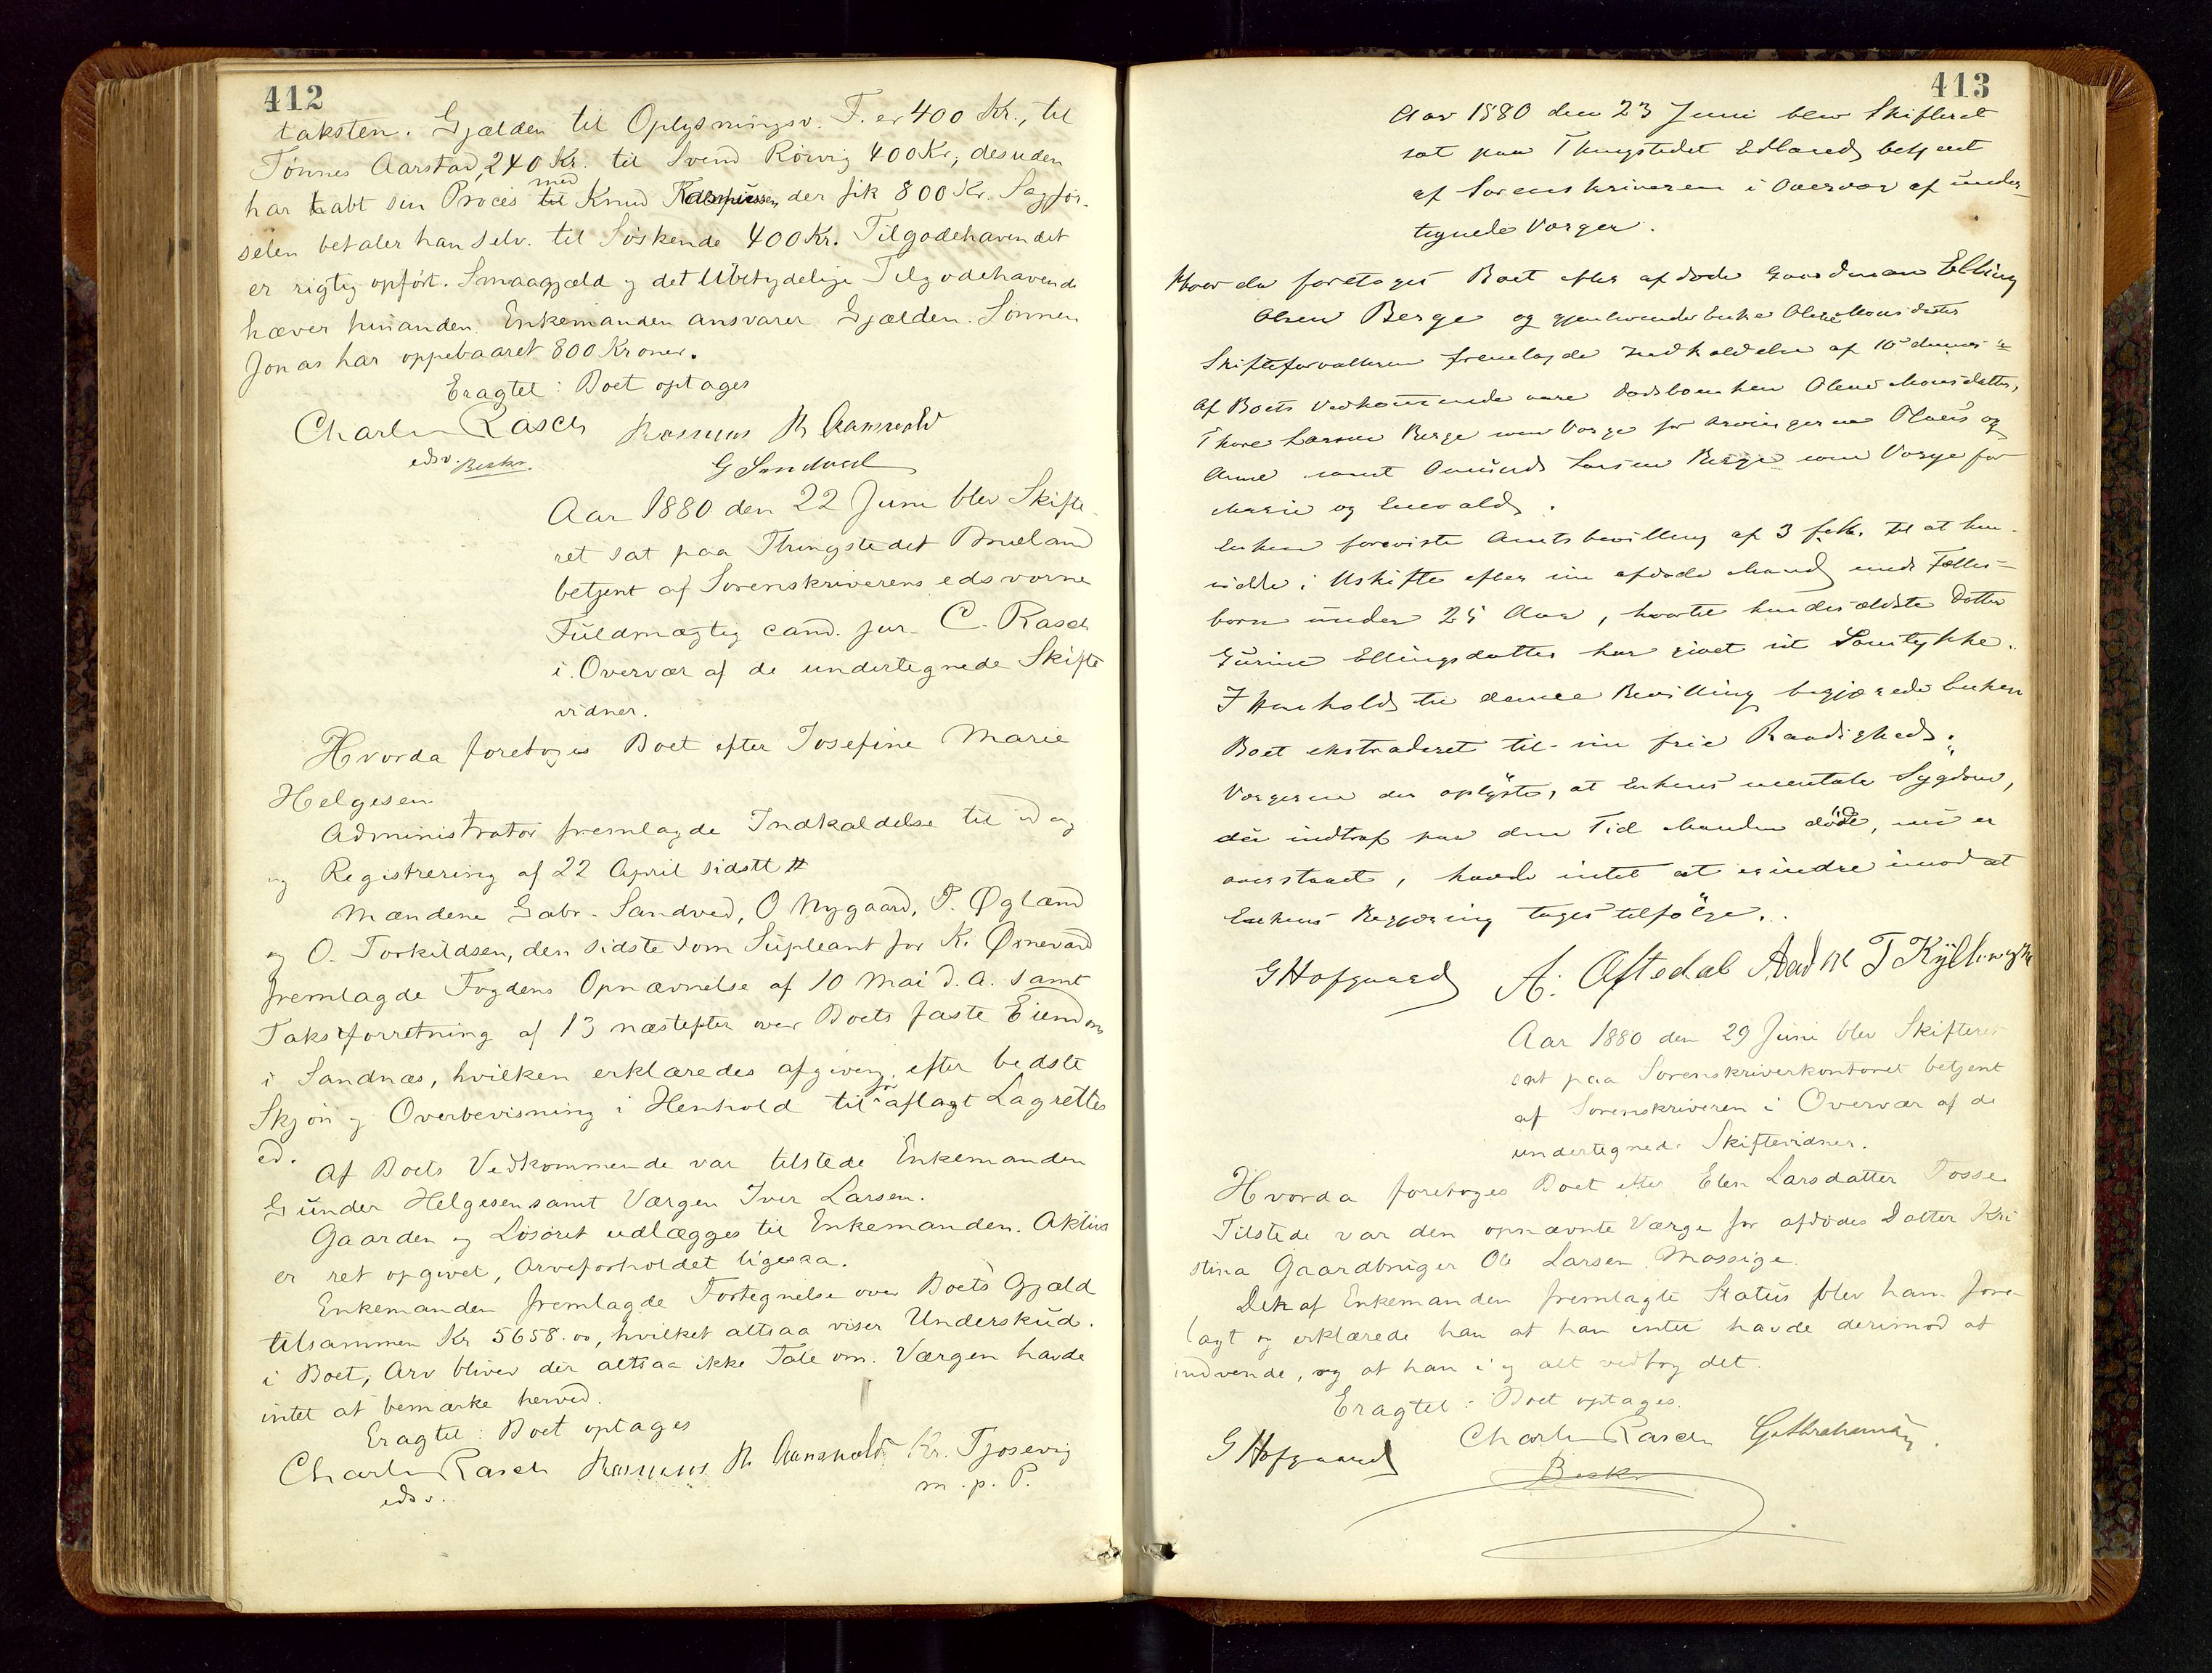 412
taksten. Gjælden til Oplysningsv. F. er 400 Kr., til
Tönnes Aarstad, 240 Kr. til Svend Rövig 400 Kr, desuden
har tabt sin Proces med Knud der fik 800 Kr. Sagför-
selen betaler han selv. til Söskende 400 Kr. Tilgodehavendet
er rigtig opfört. Smaagjæld og det Ubetydelige Tilgodehavende
hæver hinanden. Enkemanden ansvarer Gjælden. Sönnen
Jonas har oppebaaret 800 Kroner.
Eragtet: Boet optages
Charles Rasch Rasmus R
edsv. Beskr. G Sandved
Aar 1880 den 22 Juni blev Skifte-
ret sat paa Thingstedet Brueland
betjent af Sorenskriverens edsvorne
Fuldmægtig cand. jur. C. Rasch
i Overvær af de undertegnede Skifte
vidner.
Hvorda foretoges Boet efter Josefine Marie
Helgesen
Administrator fremlagde Indkaldelse til idag
og Registrering af 22 April sidstl
Mændene Gabr. Sandved, O Nygaard, T. Øgland
og O. Torkildsen, den sidste som Supleant for K.
fremlagde Fogdens Opnævnelse af 10 Mai d. A. samt
Takstforretning af 13 næstefter over Boets faste Eiendom
i Sandnæs, hvilken erklæredes afgiven efter bedste
Skjön og Overbevisning i Henhold til för aflagt Lagrettes
ed.
Af Boets Vedkommende var tilstede Enkemanden
Gunder Helgesen samt Værgen Iver Larsen.
Gaarden og Lösöret udlægges til Enkemanden. Aktiva
er ret opgivet, Arveforholdet ligesaa.
Enkemanden fremlagde Fortegnelse over Boets Gjæld
tilsammen Kr 5658.00, hvilket altsaa viser Underskud.
i Boet, Arv bliver der altsaa ikke Tale om. Værgen havde
intet at bemærke herved.
Eragtet: Boet optages
Charles Rasch Rasmus R Kr. Tjosevig
edsv. m. p. P.
413
Aar 1880 den 23 Juni blev Skifteret
sat paa Thingstedet betjent
af Sorenskriveren i Overvær af under-
tegnede Værger.
Hvor da foretoges Boet efter afdöde Gaardman Elling
Olsen Berge og gjenlevende Enke Olene Monsdatter
Skifteforvalteren fremlagde Indkaldelse af 10 dennes
Af Boets Vedkommende vare Enken Olene Monsdatter,
Thore Larsen Berge som Værge for Arvingerne og
Anne samt Larsen Berge som Værge for
Marie og Enevald.
Enken foreviste Amtsbevilling af 3 Febr. til at hen-
sidde i Uskifte efter sin afdöde Mand med Fælles-
börn under 25 Aar, hvortil hendes ældste Datter
Gurine Ellingsdatter har givet sit Samtykke.
I Henhold til denne Bevilling begjærede Enken
Boet ekstraderet til sin frie Raadighed.
Værgerne der oplyste, at Enkens mentale Sygdom,
der indtraf paa den Tid Manden döde, nu er
overstaaet, havde intet at erindre imod at
Enkens Begjæring toges tilfölge.
G Hofgaard A. Aftedal
Aar 1880 den 29 Juni blev Skifteret
sat paa Sorenskriverkontoret betjent
af Sorenskriveren i Overvær af de
undertegnede Skiftevidner.
Hvorda foretoges Boet efter Elen Larsdatter Tosse
Tilstede var den opnævnte Værge for afdödes Datter Kri
stina Gaardbruger Ole Larsen Mossige
Den af Enkemanden fremlagte Status blev ham fore-
lagt og erklærede han at han intet havde derimod at
indvende, og at han i og alt vedtog det.
Eragtet: Boet optages.
G Hofgaard Charles Rasch
Beskr